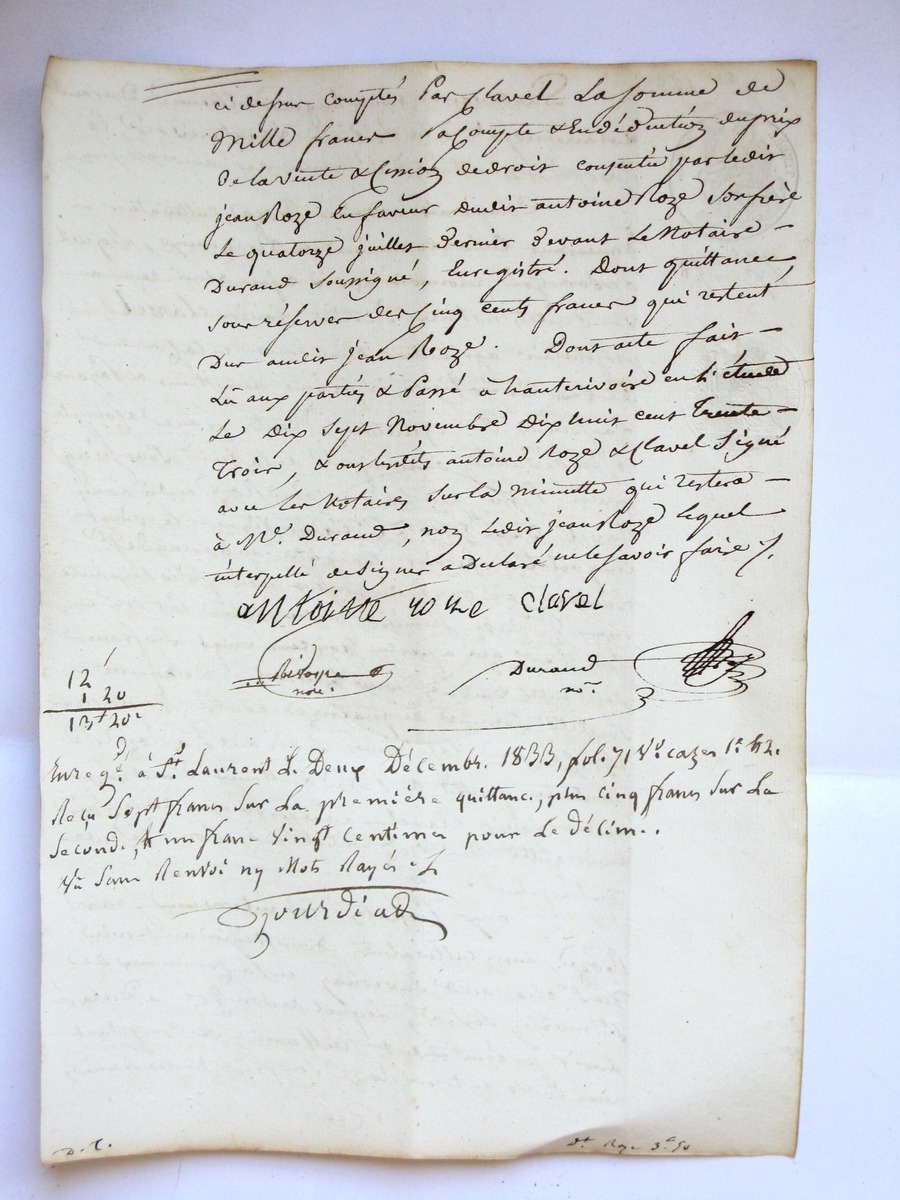 ci dessus comptés Par Clavel La somme de
Mille francs à Compte & En déduction du prix
De la vente & Cession de droit consentie par ledit
jean Roze En faveur dudit antoine Roze son frère
Le quatorze juillet Dernier Devant Le Notaire –
Durand soussigné, Enregistré. Dont quittance,
sous réserver des Cinq cents francs qui restent
Dus audit jean Roze. Dont acte fait –
Lû aux parties & Passé à hauterivoire en l'étude
Le Dix Sept Novembre Dix huit cent Trente –
Trois, & ont lesdits antoine roze & Clavel Signé
avec les Notaires sur la minutte qui restera –
à Me. Durand, non ledit jean Roze lequel
interpellé de signer a Déclaré ne le savoir faire /.
antoitte roze clavel
notre.
Durand
nore.
12
1 20
13f 20c
Enregé. à St. Laurent Le Deux Décembr. 1833, fol. 71 Vo. cazes 1e. & 2.
Reçu Sept francs Sur La première quittanc., plus cinq francs Sur La
Seconde, & un franc Vingt Centimes pour Le Décim..
Vu Sans Renvoi ny Mots Rayés
D. C.